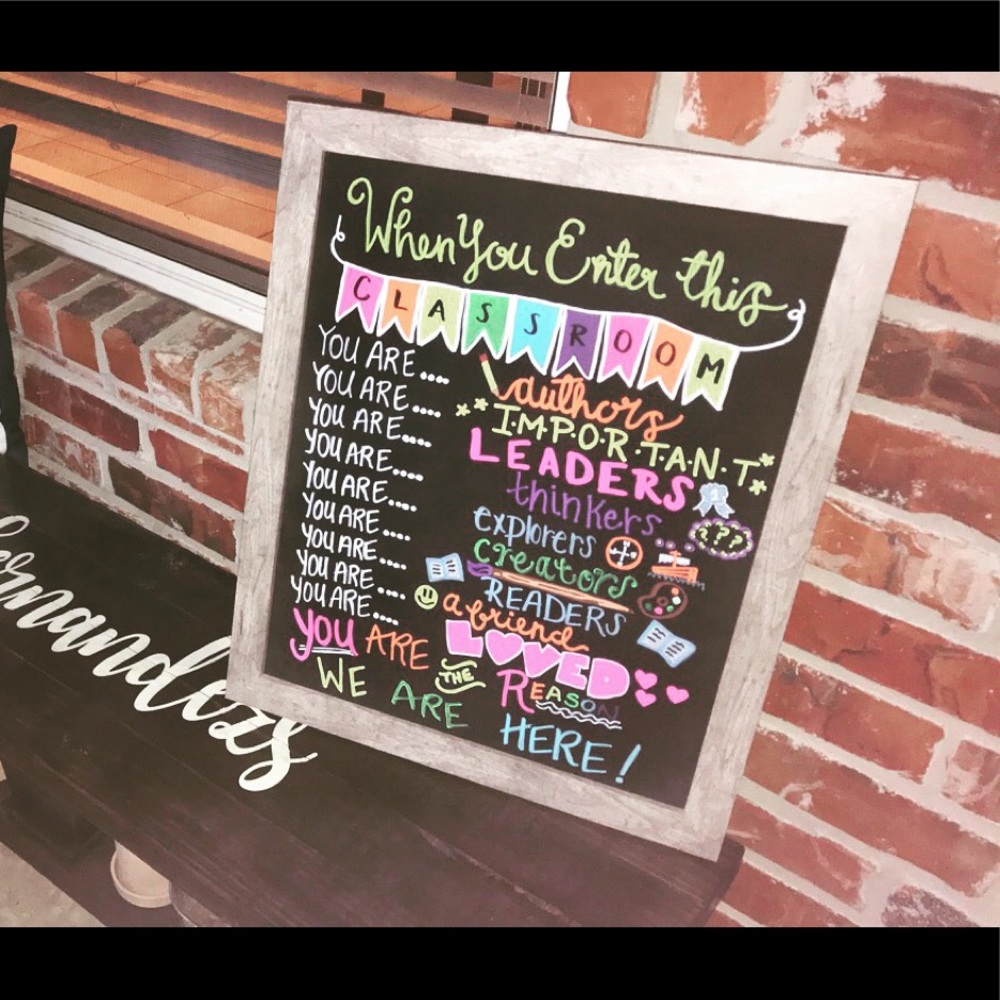 When You Enter this
CLASSROOM
YOU ARE.... authors
YOU ARE.... I·M·P·O·R·T·A·N·T
YOU ARE.... LEADERS
YOU ARE.... thinkers... ???
YOU ARE.... explorers
YOU ARE.... creators
YOU ARE.... READERS
YOU ARE.... a friend
YOU ARE.... LOVED
YOU ARE THE REASON
WE ARE HERE!